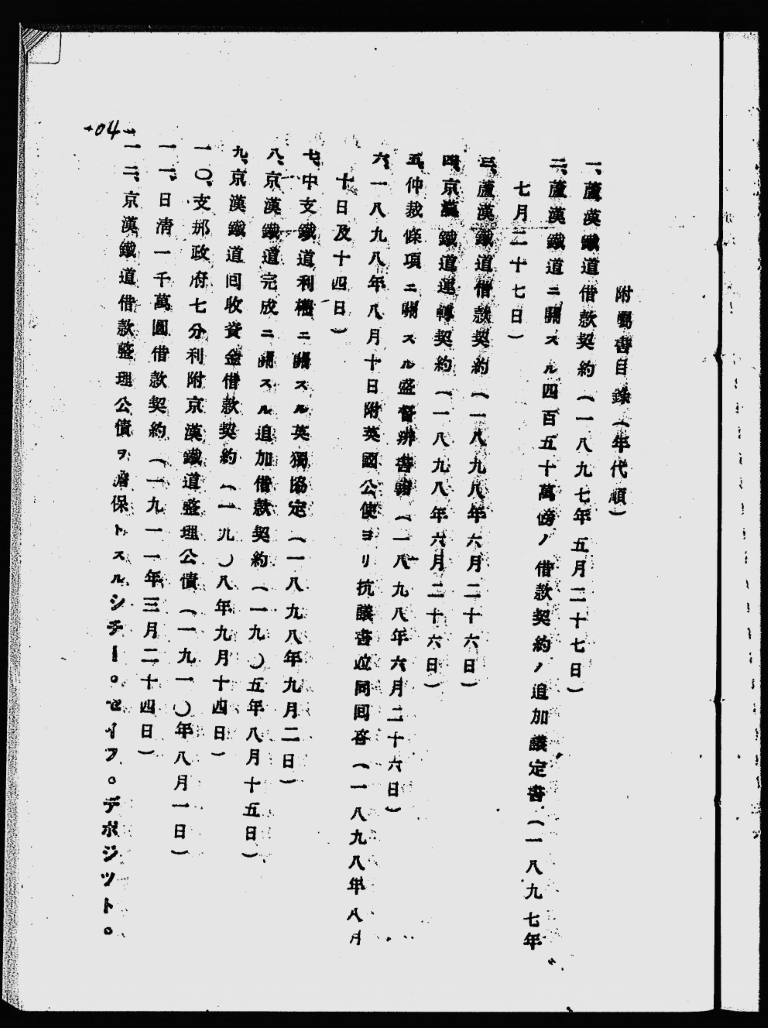 附屬書目錄(年代順)
一、蘆漢鐵道借款契約(一八九七年五月二十七日)
二、蘆漢鐵道ニ關スル四百五十萬磅ノ借款契約ノ追加議定書(一八九七年
七月二十七日)
三、蘆漢鐵道借款契約(一八九八年六月二十六日)
四、京漢鐵道運轉契約(一八九八年六月二十六日)
五、仲裁條項ニ關スル盛督辨書翰(一八九八年六月二十六日)
六、一八九八年八月十日附英國公使ヨリ抗議書竝同回答(一八九八年八月
十日及十四日)
七、中支鐵道利權ニ關スル英獨協定(一八九八年九月二日)
八、京漢鐵道完成ニ關スル追加借款契約(一九〇五年八月十五日)
九、京漢鐵道回收資金借款契約(一九〇八年九月十四日)
一〇、支那政府七分利附京漢鐵道整理公債(一九一〇年八月一日)
一一、日清一千萬圓借款契約(一九一一年三月二十四日)
一二、京漢鐵道借款整理公債ヲ擔保トスルシチー。セイフ。デポジツト。
104